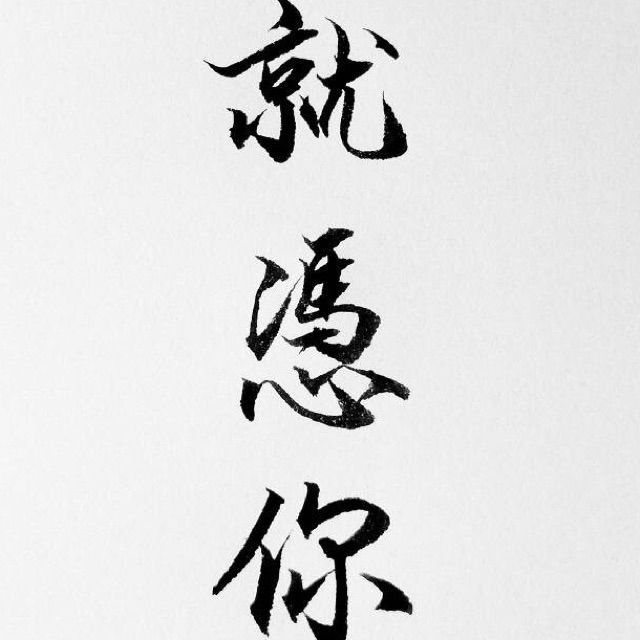 就憑你